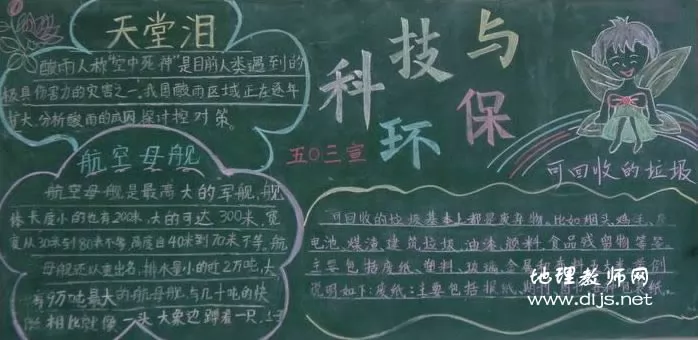 天堂泪
酸雨人称“空中死神”是目前人类遇到的
极具伤害力的灾害之一,我国酸雨区域正在逐年
扩大,分析酸雨的成因探讨控对策。
航空母舰
航空母舰是最高大的军舰,舰
体长度小的也有200米,大的可达300米,宽
度从30米到80米不等,高度自40米到70米不等,航
母舰还以重出名,排水量小的近2万吨,大
有9万吨最大的航母舰与几十吨的快
相比就像一头大象边蹲着一只
科技与
环保
五〇三宣
可回收的垃圾
可回收的垃圾基本上都是废弃物,比如烟头、鸡毛、
电池、煤渣、建筑垃圾、油漆、颜料、食品残留物等等
主要包括废纸、塑料、玻璃、金属和布料五大类
说明如下:废纸:主要包括报纸
地理教师网
www.dljs.net